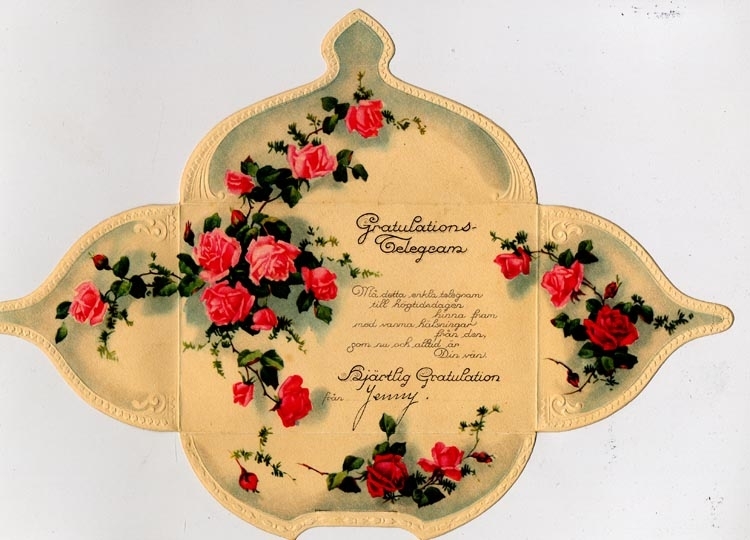 Gratulations-
Telegram
Må detta enkla telegram
till högtidsdagen
hinna fram
med varma hälsningar
från den,
som nu och alltid är
Din vän.
Hjärtlig Gratulation
från Jenny.